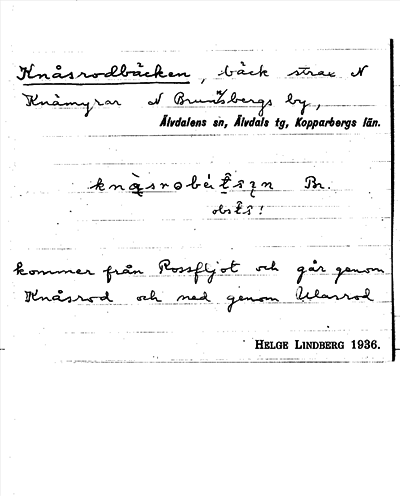 Knåsrodbäcken, bäck strax N
Knåmyrar N Brunnsbergs by,
Älvdalens sn, Älvdals tg, Kopparbergs län.
Br.
obs t̂ŝ!
kommer från Rossfljot och går genom
Knåsrod och ned genom Ulasrod
HELGE LINDBERG 1936.